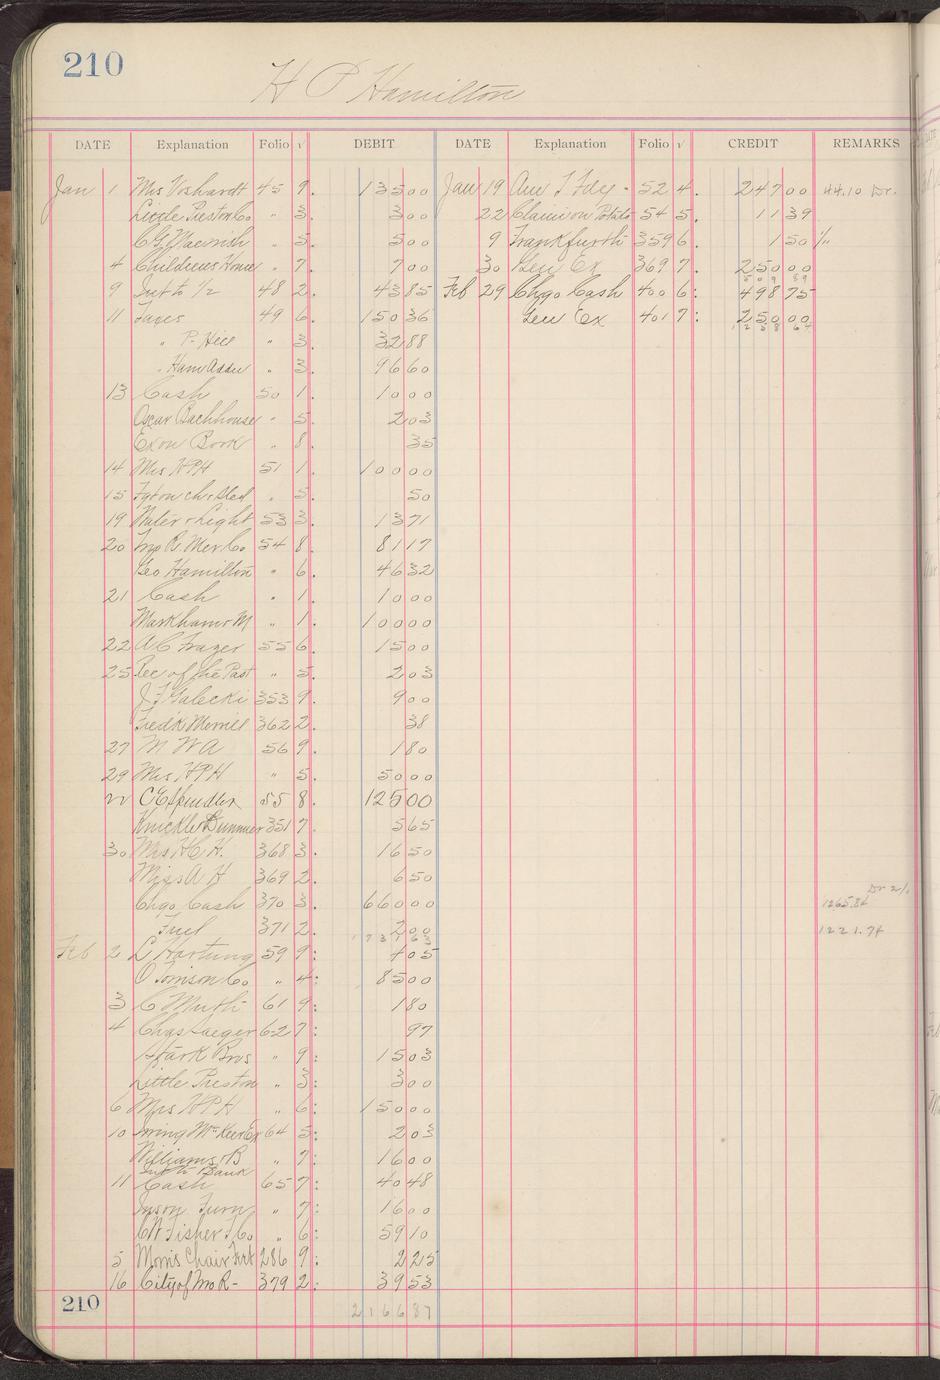 210
H P Hamilton
DATE Explanation Folio √ DEBIT DATE Explanation Folio √ CREDIT REMARKS
Jan 1 Mrs Voshardt 45 9. 135 00 Jan 19 Am T Fdy - 52 4. 247 00 44.10 Dr.
Little Preston Co " 3. 3 00 22 Claim on Potato 54 5. 11 39
C G Macnish " 5. 5 00 9 Frankfurth 359 6. 1 50
4 Childrens Home " 7. 7 00 30 Gen Ex 369 7. 250 00
9 Int to 1/2 48 2. 43 85 Feb 29 Chgo Cash 400 6: 498 75
11 Taxes 49 6. 150 36 Gen Ex 401 7: 250 00
" P. Hill " 3. 32 88
" Ham Addn " 3. 96 60
13 Cash 50 1. 10 00
Oscar Bachhouse " 5. 2 03
Exon Book " 8. 35
14 Mrs HPH 51 1. 100 00
15 " 5. 50
19 Water & Light 53 3. 13 71
20 Imp R. Mer. Co 54 8. 81 17
Geo Hamilton " 6. 46 32
21 Cash " 1. 10 00
Markham & M " 1. 100 00
22 A C Frazer 55 6. 15 00
25 Rec of the Past " 5. 2 03
J F Galecki 353 9. 9 00
Fredk Morrill 362 2. 38
27 M W A 56 9. 1 80
29 Mrs HPH " 5. 50 00
22 C E Spindler 55 8. 125 00
351 7. 5 65
30 Mrs H C H. 368 3. 16 50
Miss A H 369 2. 6 50
Chgo Cash 370 3. 660 00 1265.84
Fuel 371 2. 2 00 1221.74
Feb 2 L Hartung 59 9: 4 05
O Torrison Co " 4: 85 00
3 C Muth 61 9: 1 80
4 Chas Jaeger 62 7: 97
Stark Bros " 9: 15 03
Little Preston " 3: 3 00
6 Mrs HPH " 6: 150 00
10 Irving 64 5: 2 03
Williams & B " 7: 16 00
Int to Bank
11 Cash 65 7: 40 48
Turn " 7: 16 00
C W Fisher F Co " 6: 59 10
5 Morris Chair Frt 286 9: 2 25
16 City of Mo R - 379 2: 39 53
210 2166 87